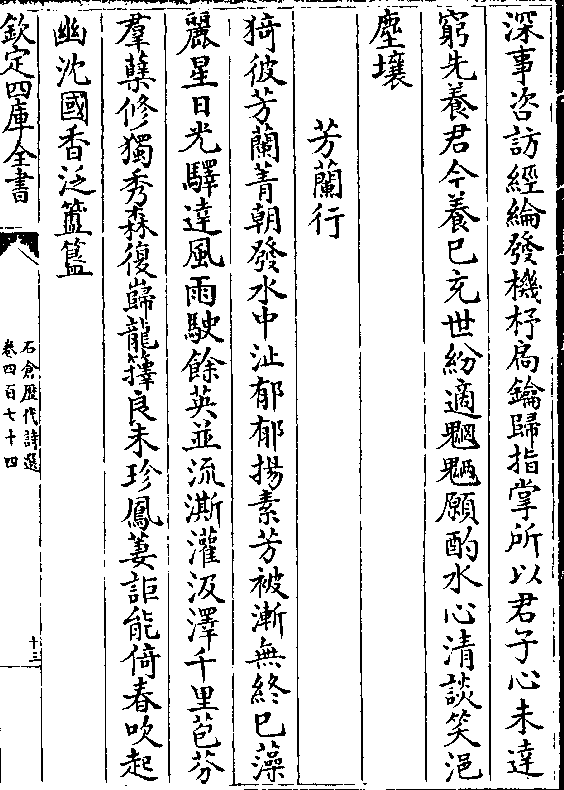 深事咨訪經綸發機杼扃鑰歸指掌所以君子心未達
窮先養君今養已充世紛適魍魎願酌水心清談笑浥
塵壤
芳蘭行
猗彼芳蘭菁朝發水中沚郁郁揚素芳被漸無終已藻
麗星日光驛達風雨駛餘英並流澌灌汲澤千里苞芬
羣蘖修獨秀森復巋龍籜良未珍鳳萋詎能倚春吹起
幽沈國香泛簠簋
欽定四庫全書
石倉歴代詩選
卷四百七十四
十三